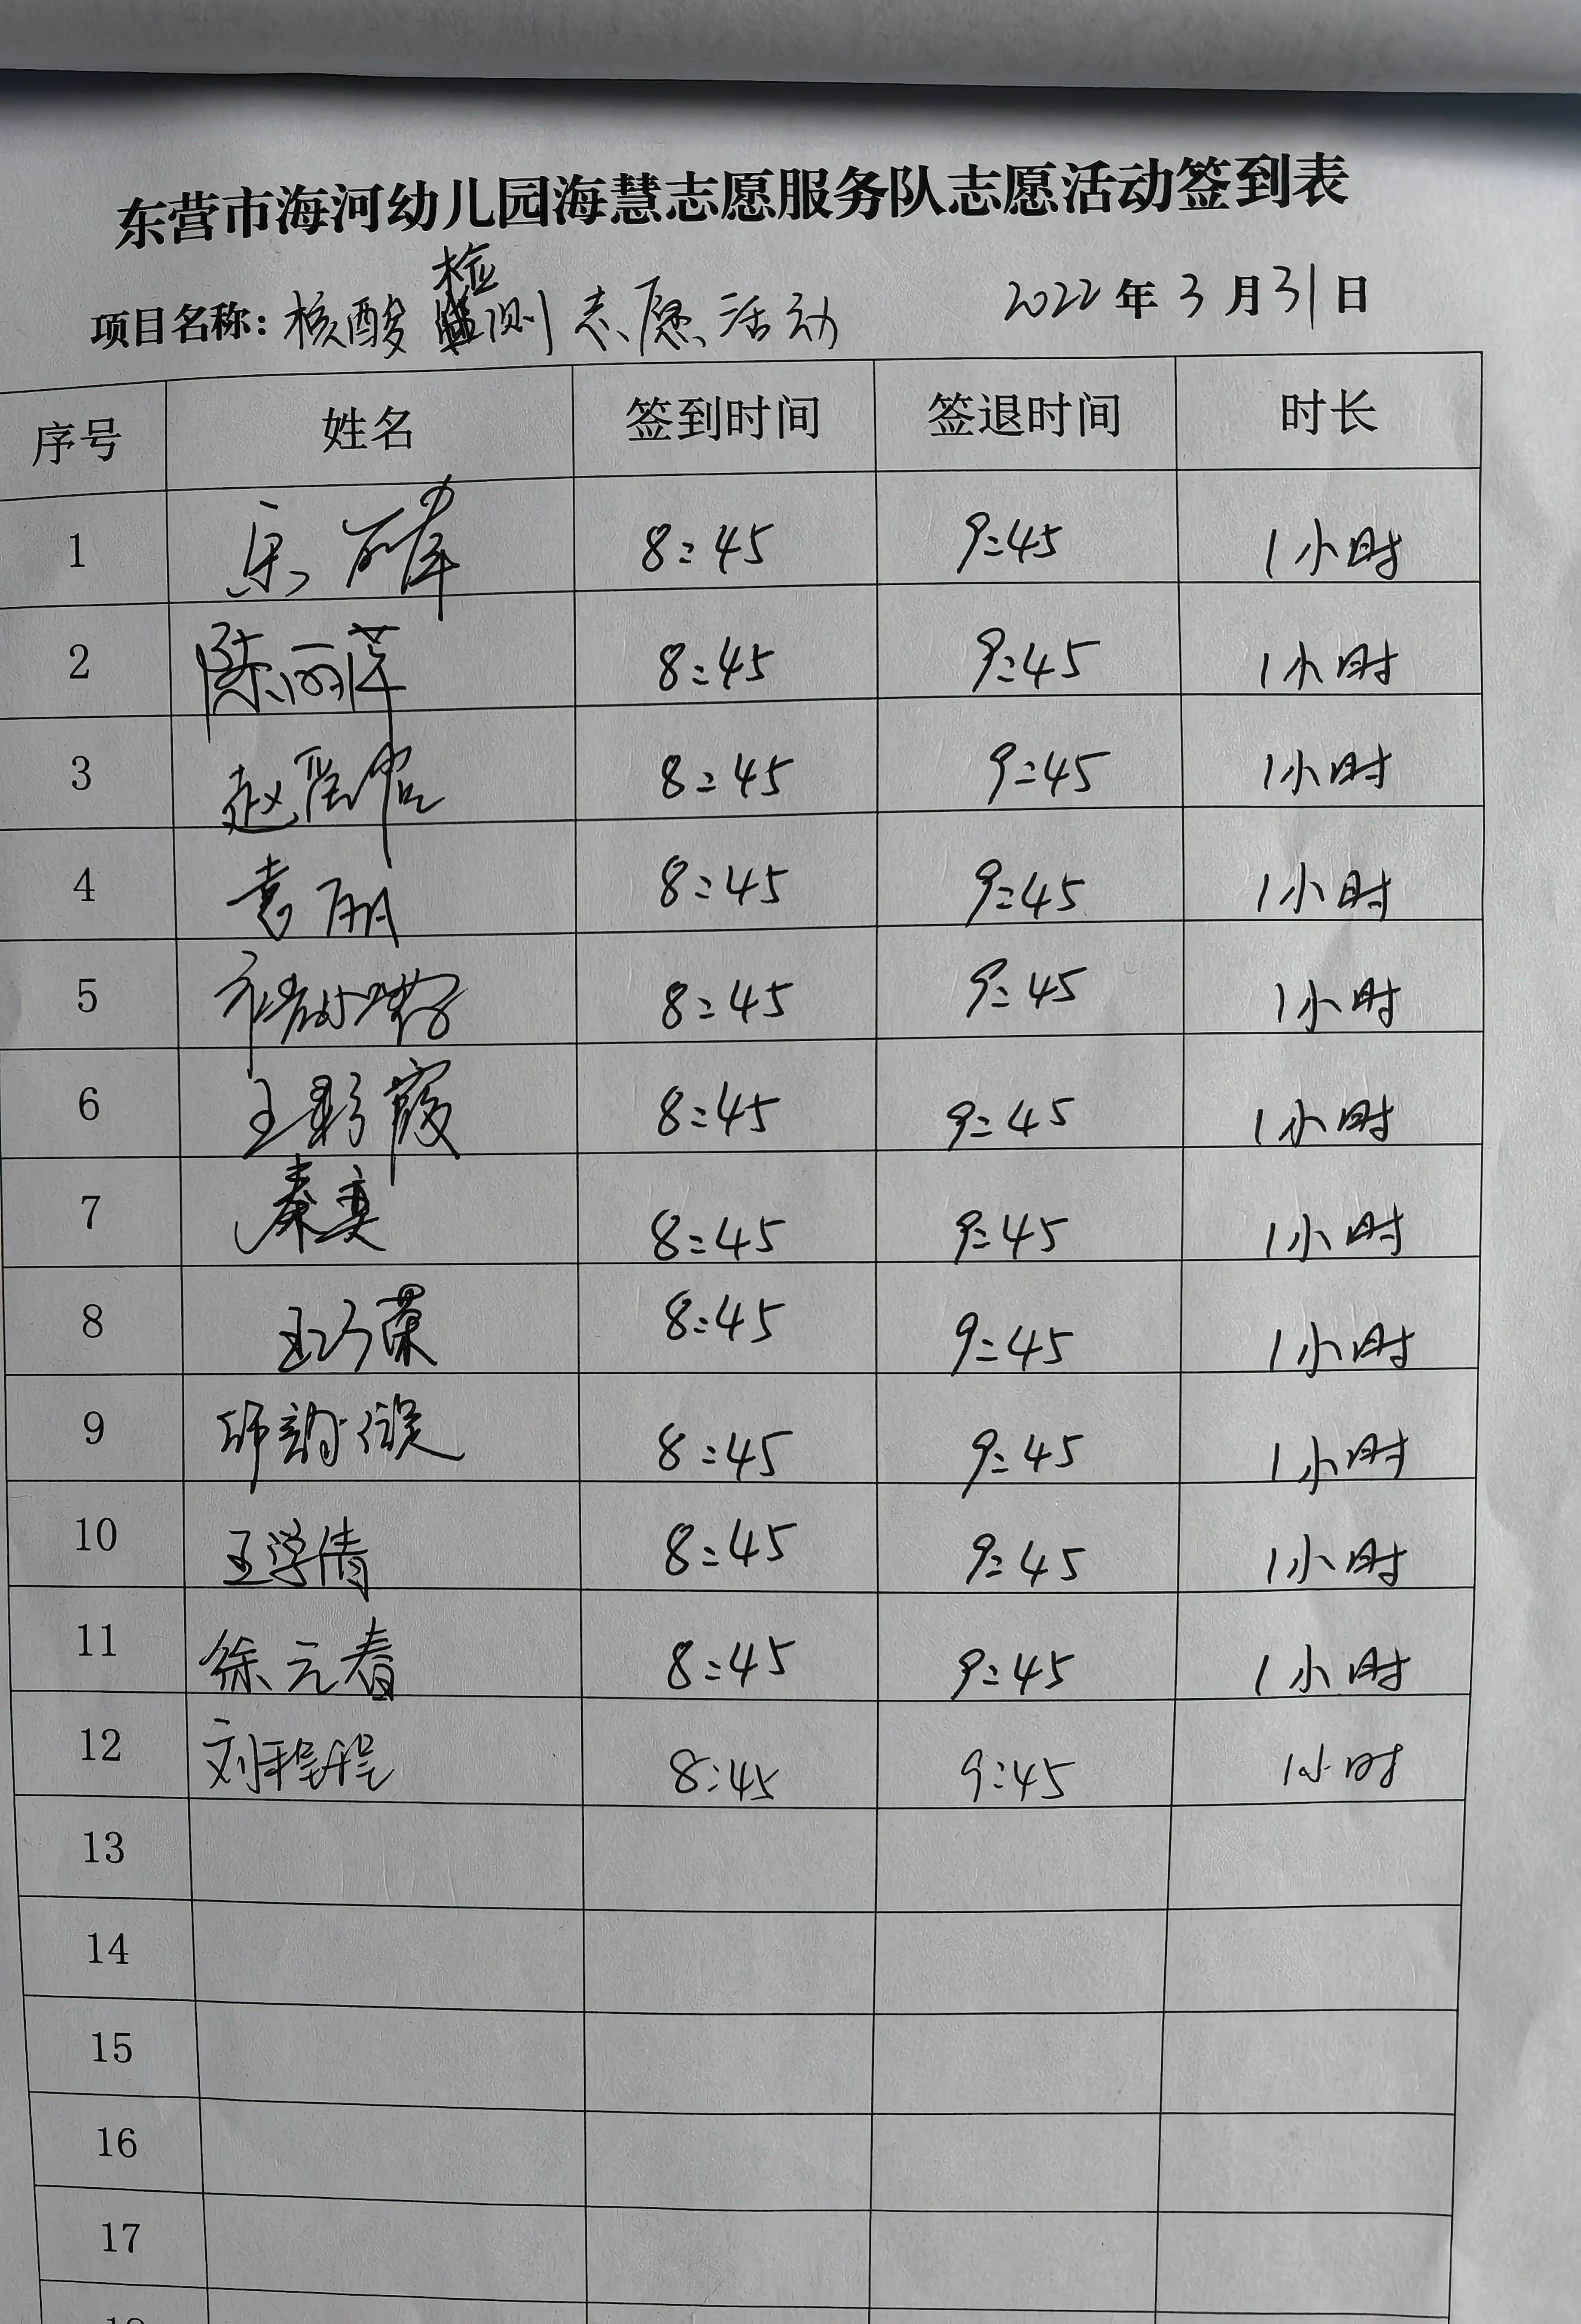 东营市海河幼儿园海慧志愿服务队志愿活动签到表
检
项目名称：核酸测志愿活动 2022年3月31日
序号 姓名 签到时间 签退时间 时长
1 8:45 9:45 1小时
2 陈丽萍 8:45 9:45 1小时
3 赵 8:45 9:45 1小时
4 袁丽 8:45 9:45 1小时
5 8:45 9:45 1小时
6 王彩霞 8:45 9:45 1小时
7 秦奕 8:45 9:45 1小时
8 王巧荣 8:45 9:45 1小时
9 8:45 9:45 1小时
10 王学倩 8:45 9:45 1小时
11 徐元春 8:45 9:45 1小时
12 刘程程 8:45 9:45 1小时
13
14
15
16
17